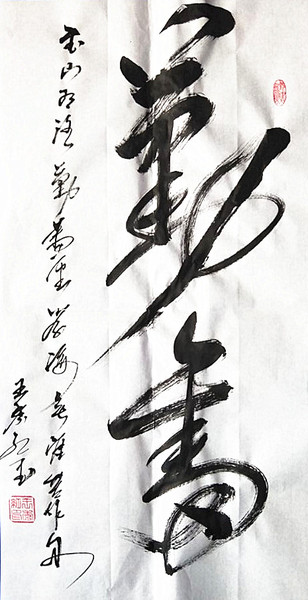 勤奮
书山有路勤為径學海無涯苦作舟